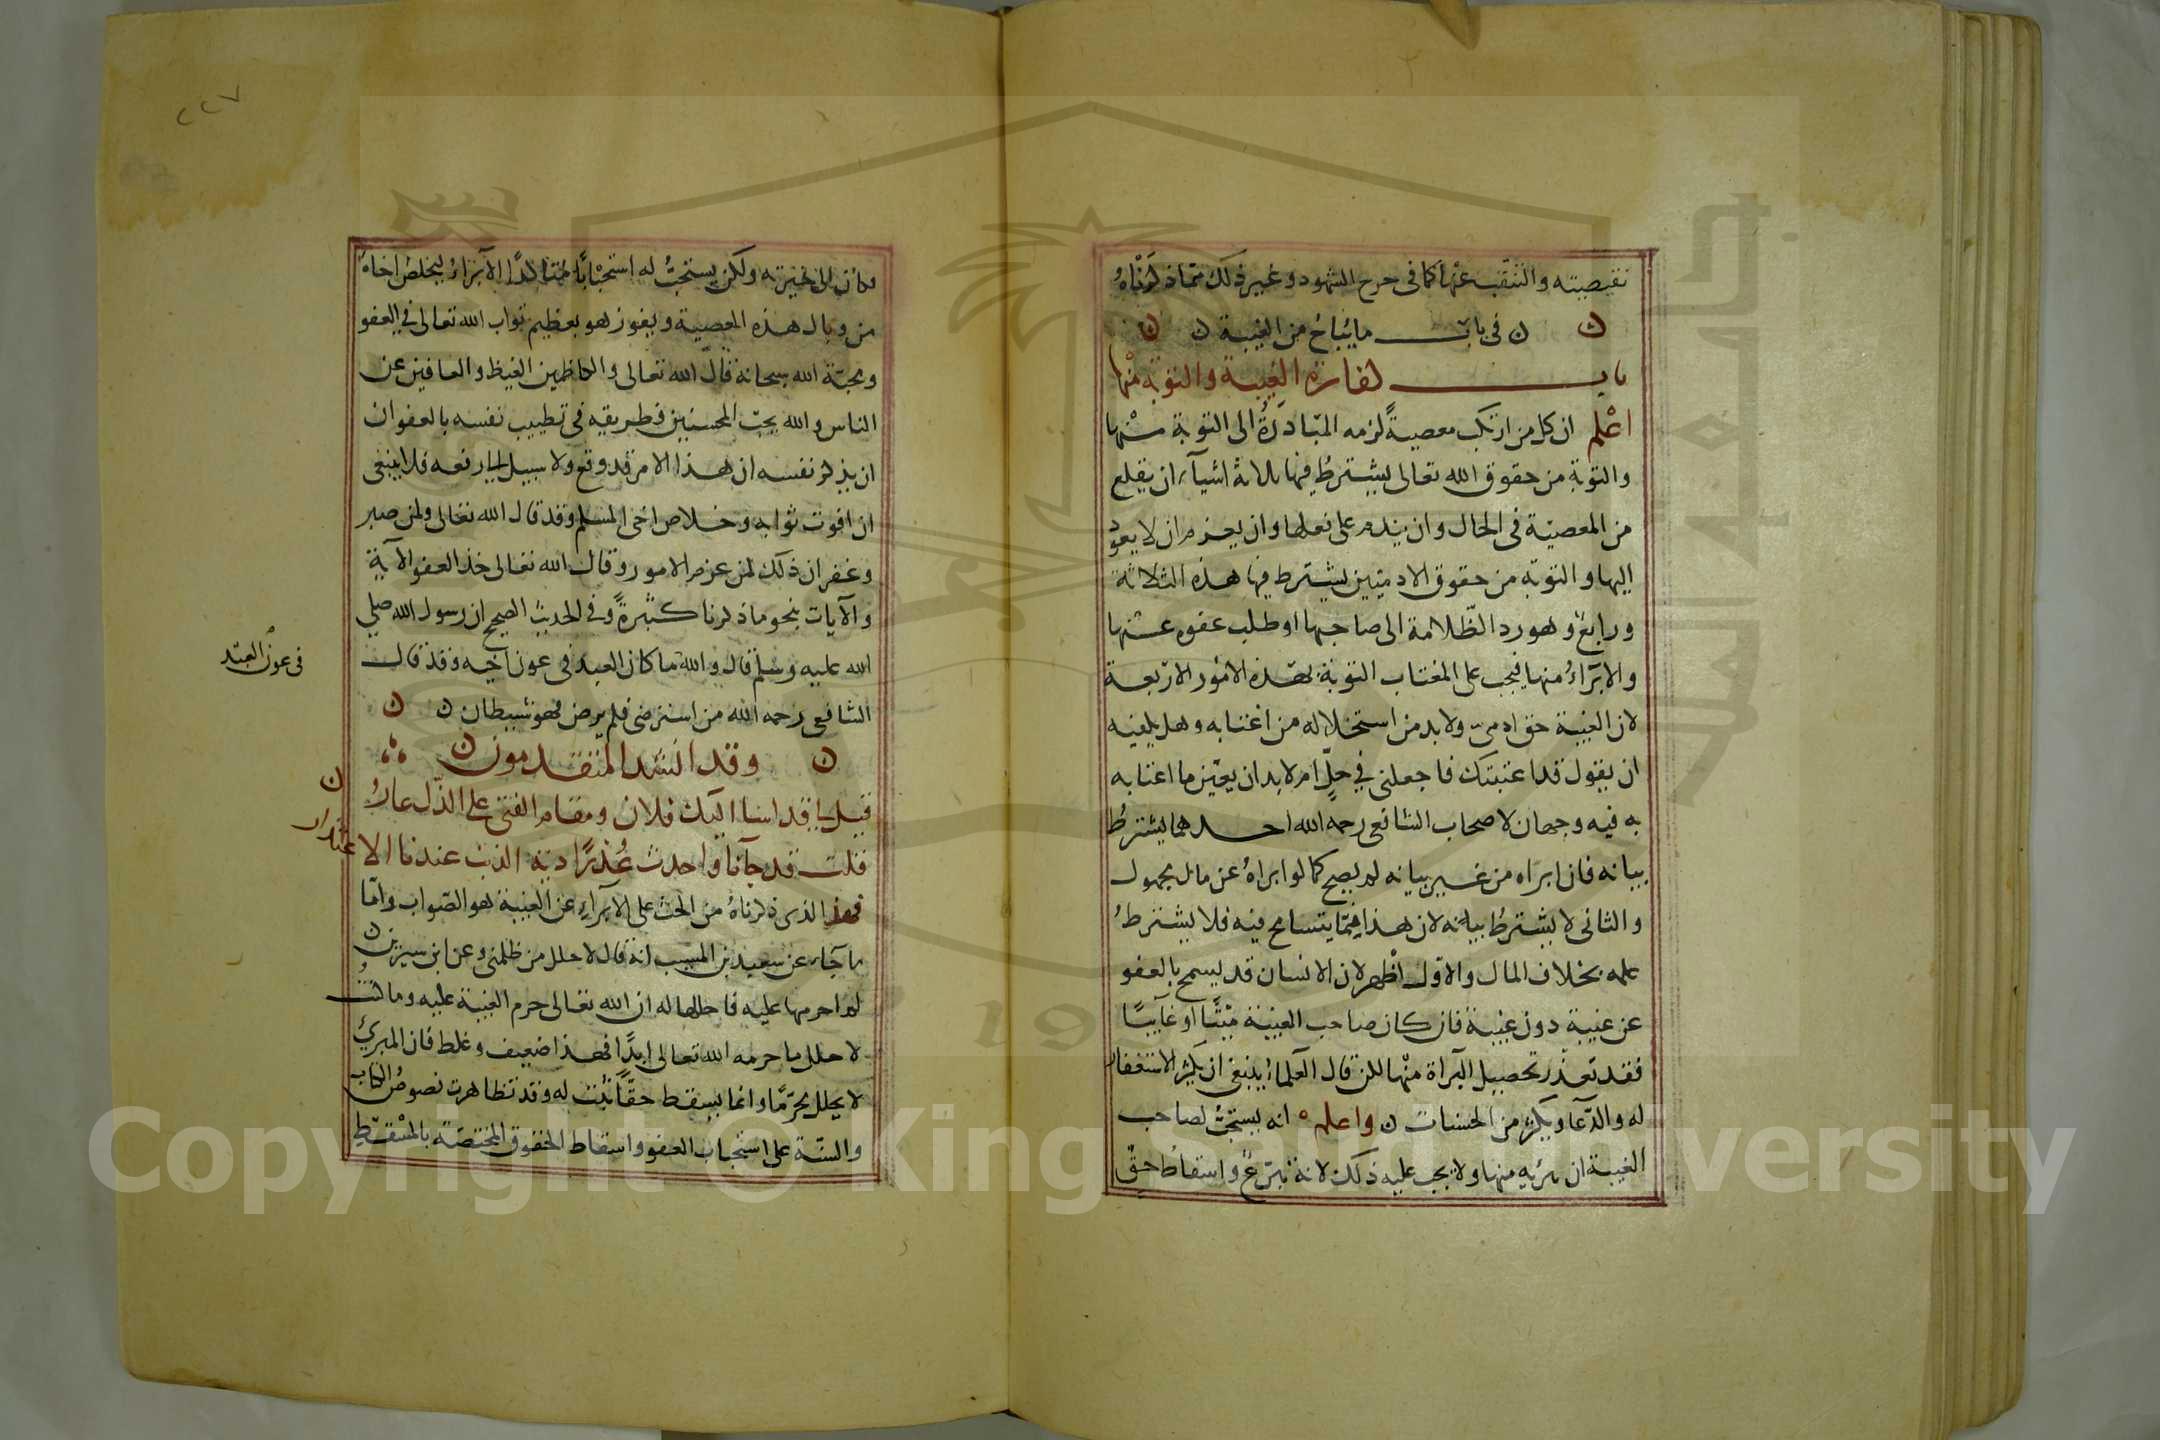 نقيصته والتنقب عنها كما في جرح الشهود وغير ذلك مما ذكرناه
ن ن في باب ما يباح من الغيبة ن ن
باب كفارة الغيبة والتوبة منها
اعلم ان كل من ارتكب معصية لزمه المبادرة الى التوبة منها
والتوبة من حقوق الله تعالى يشترط فيها ثلاثة اشياء ان يقلع
من المعصية في الحال وان يندم على فعلها وان يعزم ان لا يعود
اليها والتوبة من حقوق الادميين يشترط فيها هذه الثلاثة
ورابع وهو رد الظلامة الى صاحبها او طلب عفوه عنها
والابراء منها فيجب على المغتاب التوبة بهذه الامور الاربعة
لان الغيبة حق ادمي ولا بد من استحلاله من اغتابه وهل يكفيه
ان يقول قد اغتبتك فاجعلني في حل ام لا بد ان يعين ما اغتابه
به فيه وجهان لاصحاب الشافعي رحمه الله احدهما يشترط
بيانه فان ابراه من غير بيانه لم يصح كما لو ابراه عن مال مجهول
والثاني لا يشترط بيانه لان هذا مما يتسامح فيه فلا يشترط
علمه بخلاف المال والاول اظهر لان الانسان قد يسمح بالعفو
عن غيبة دون غيبة فان كان صاحب الغيبة ميتا او غايبا
فقد تعذر تحصيل البراة منها لكن قال العلماء ينبغي ان يكثر الاستغفار
له والدعا ويكثر من الحسنات ن واعلم انه يستحب لصاحب
الغيبة ان يبريه منها ولا يجب عليه ذلك لانه تبرع واسقاط حق
٢٢٧
فكان الى خيرته ولكن يستحب له استحبابا متاكدا الابراء ليخلص اخاه
من وبال هذه المعصية ويفوز هو بعظيم ثواب الله تعالى في العفو
ومحبة الله سبحانه قال الله تعالى والكاظمين الغيظ والعافين عن
الناس والله يحب المحسنين فطريقه في تطييب نفسه بالعفو ان
ان يذكر نفسه ان هذا الامر قد وقع ولا سبيل الى رفعه فلا ينبغي
ان افوت ثوابه وخلاص اخي المسلم وقد قال الله تعالى ولمن صبر
وغفر ان ذلك لمن عزم الامور وقال الله تعالى خذ العفو الآية
والآيات بنحو ما ذكرنا كثيرة وفي الحديث الصحيح ان رسول الله صلى
الله عليه وسلم قال والله ما كان العبد في عون اخيه وقد قال
في عون العبد
الشافعي رحمه الله من استرضي فلم يرض فهو شيطان ن ن
ن وقد انشد المتقدمون ن
قيل لي قد اسا اليك فلان ومقام الفتى على الذل عار ن
قلت قد جآنا واحدث عذرا دية الذنب عندنا الاعتذار
فهذا الذي ذكرناه من الحث على الابراء عن الغيبة هو الصواب واما
ما جاء عن سعيد بن المسيب انه قال لا احلل من ظلمني وعن ابن سيرين
لم احرمها عليه فاحللها له ان الله تعالى حرم الغيبة عليه وما كنت
لا حلل ما حرمه الله تعالى ابدا فهذا ضعيف وغلط فان المبري
لا يحلل محرما وانما يسقط حقا ثبت له وقد تظاهرت نصوص الكتاب
والسنة على استحباب العفو واسقاط الحقوق المختصة بالمسقط
Copyright © King Saud University